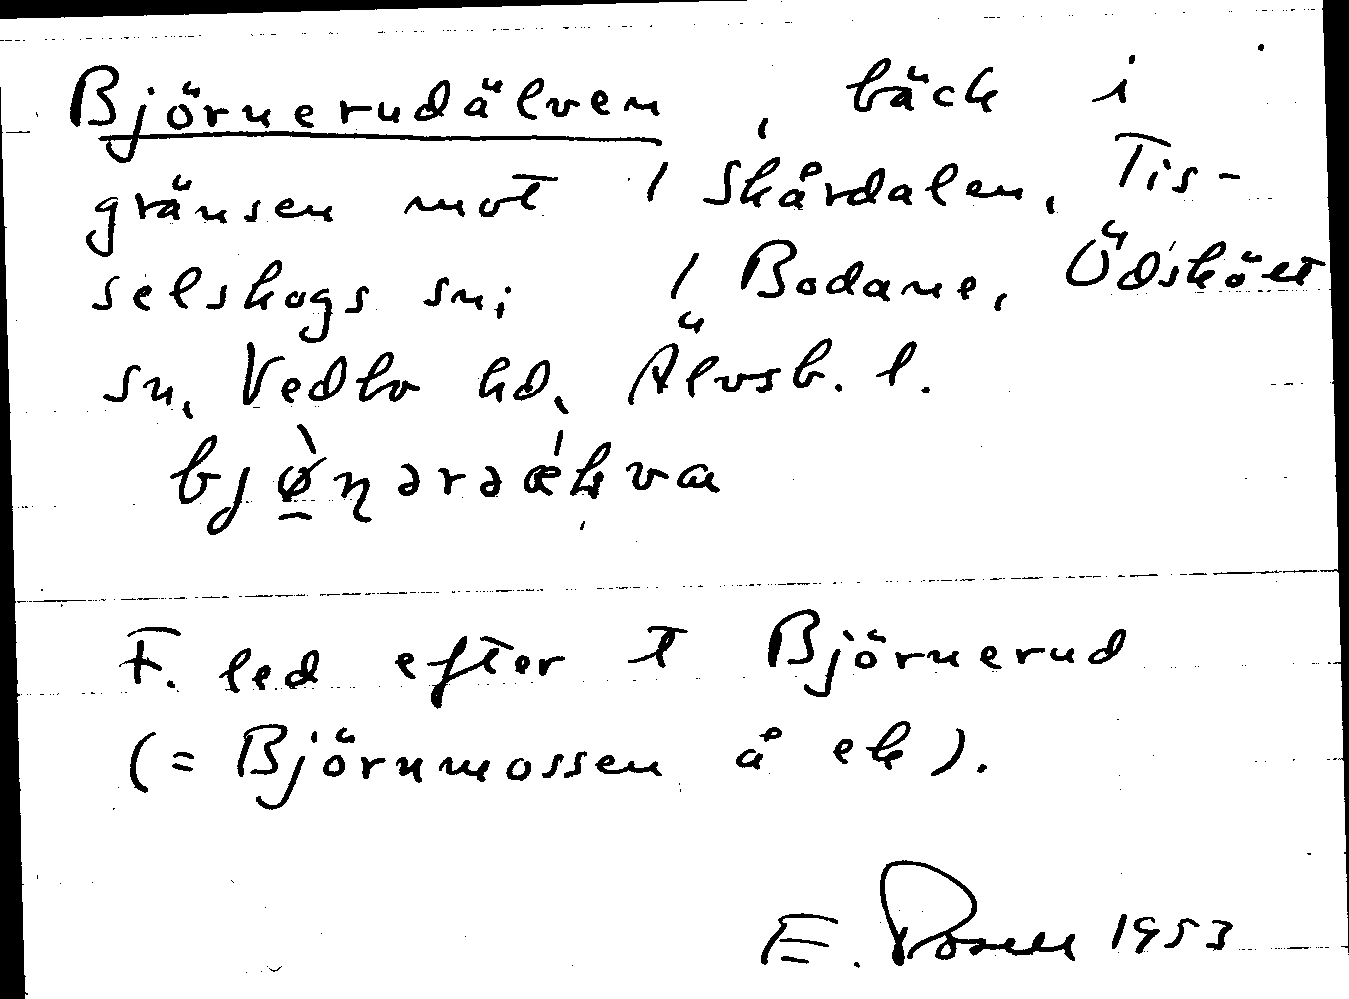 Björnerudälven, bäck i
gränsen mot / Skårdalen, Tis-
selskogs sn; / Bodane, Ödsköts
sn, Vedbo hd, Älvsb. l.
bjø̱̀ɳərəǽɫva
F. led efter t Björnerud
(= Björnmossen å ek).
E. 1953